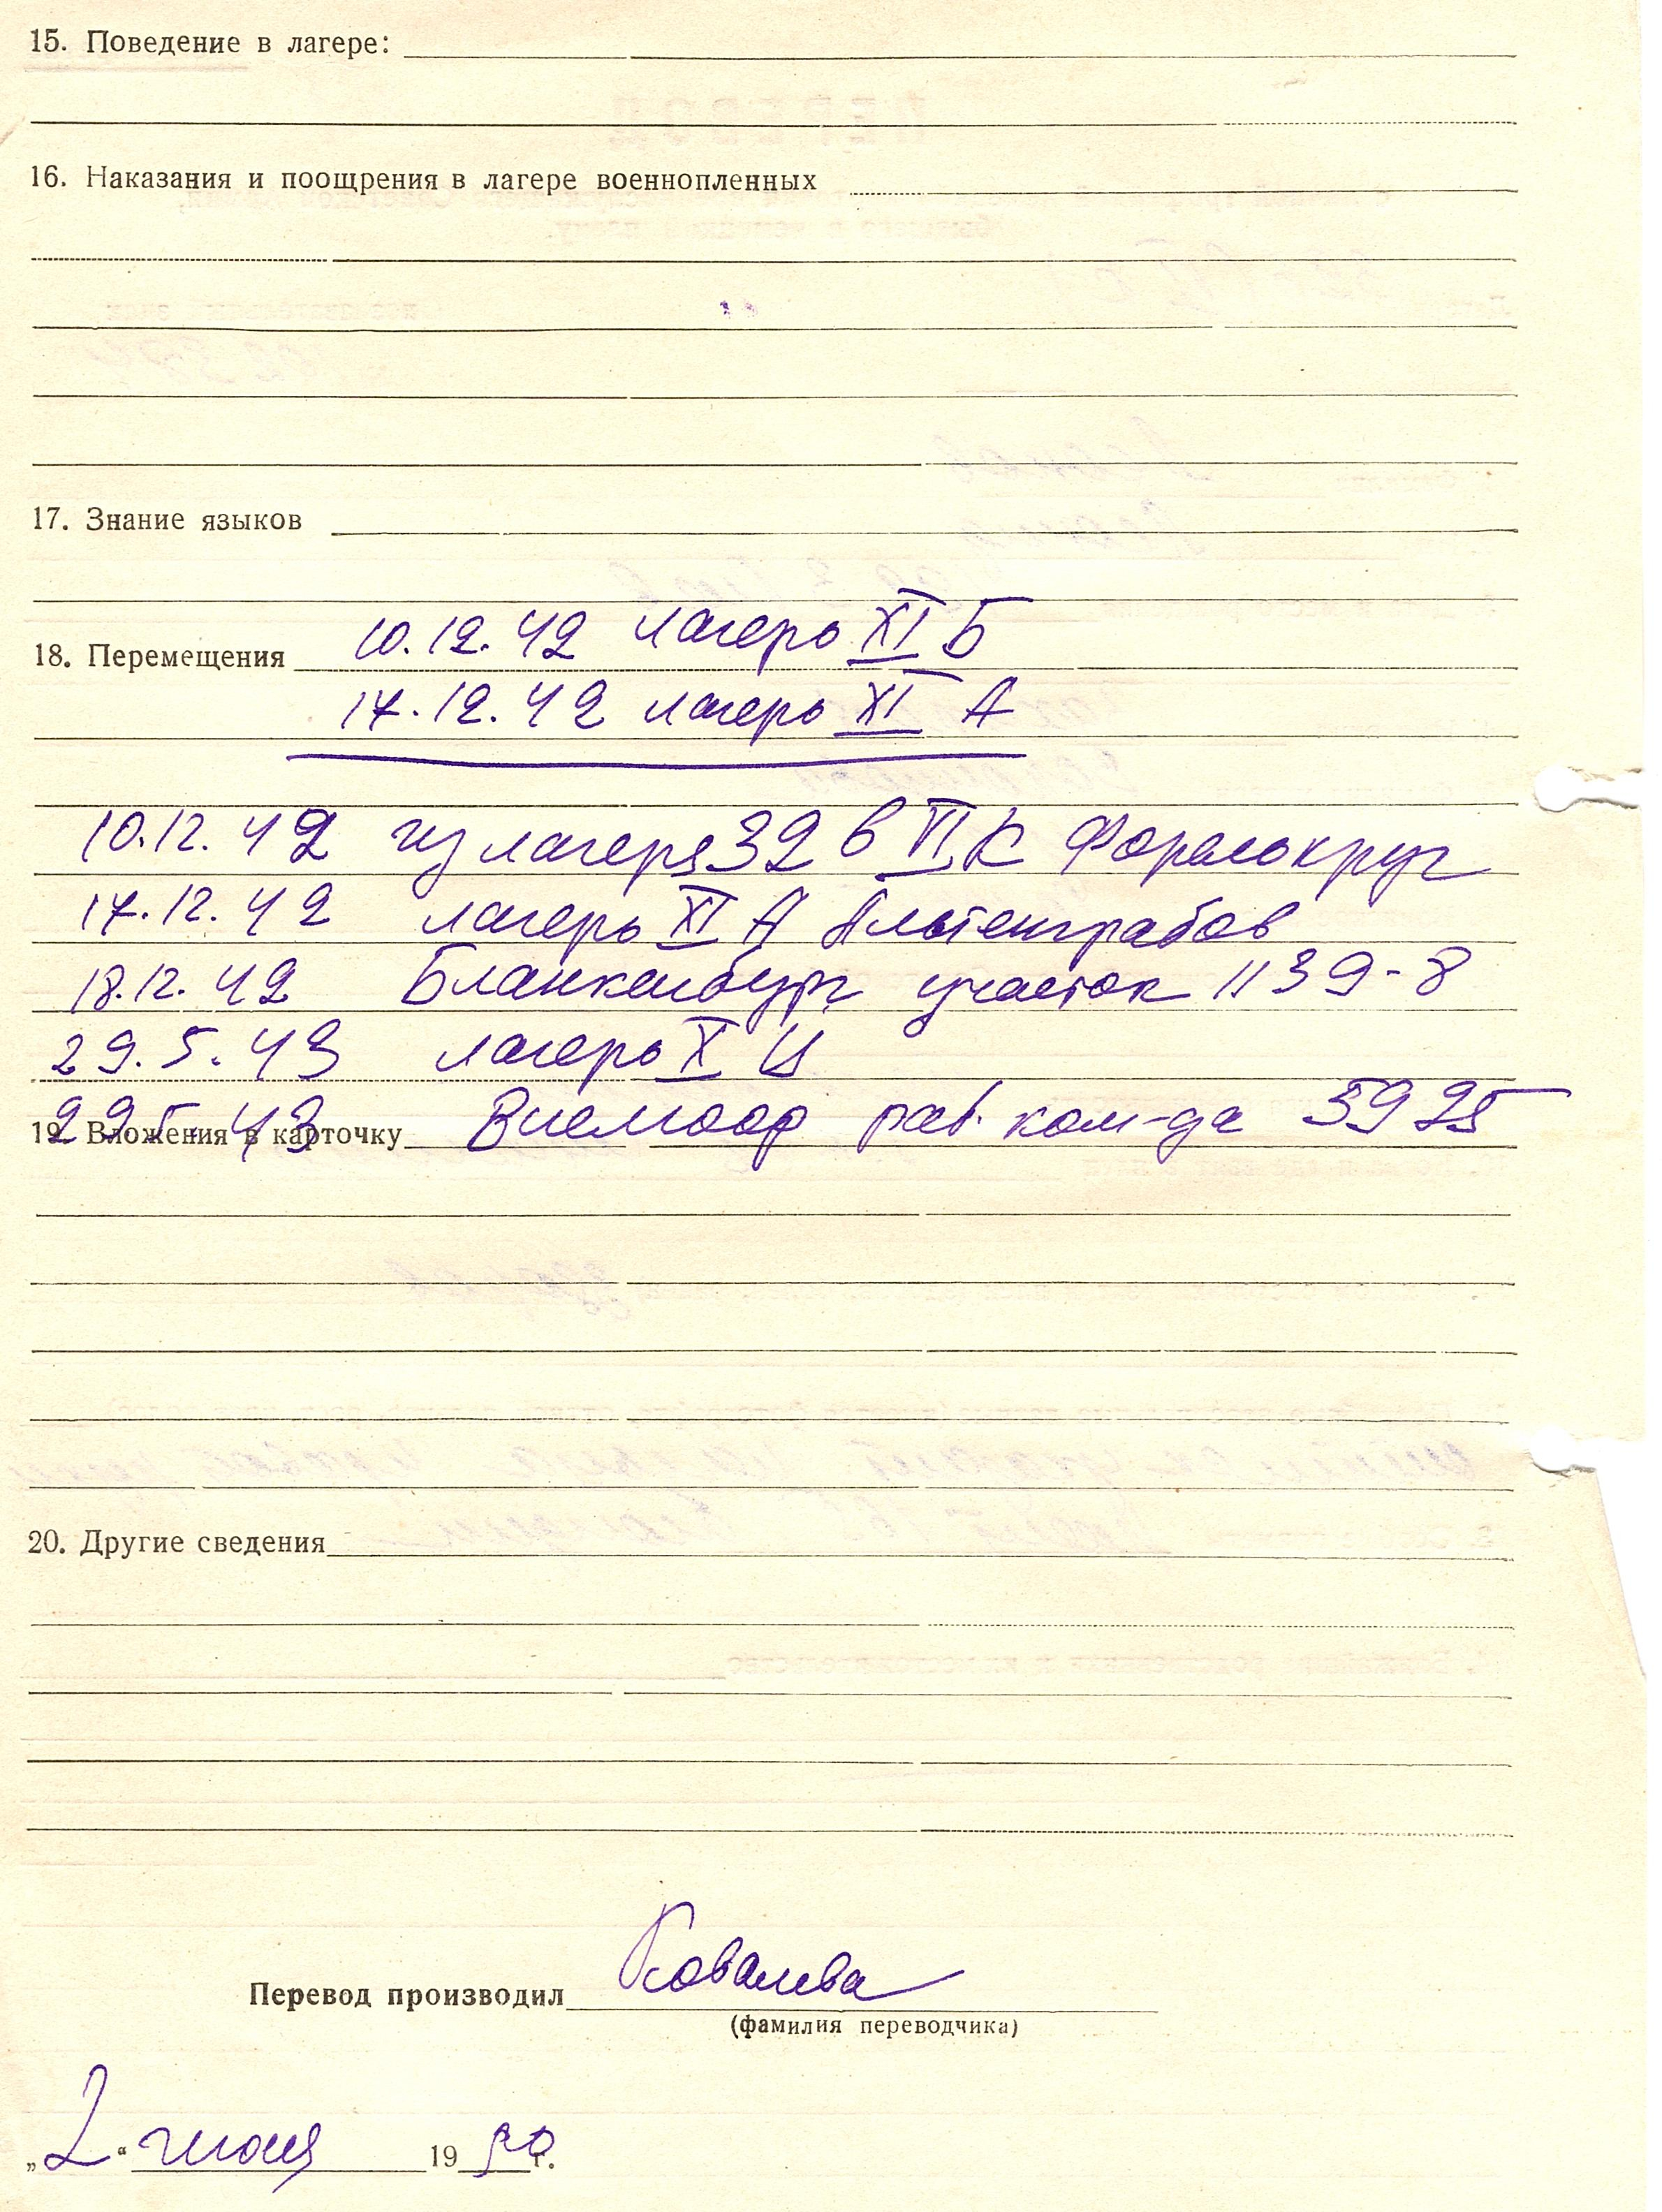 15. Поведение в лагере:
16. Наказания и поощрения в лагере военнопленных
17. Знание языков
18. Перемещения 10.12.42 лагерь XI Б
17.12.42 лагерь XI А
10.12.42 из лагеря 32 в VI К Форелькруг
17.12.42 лагерь XI А Альтенграбов
18.12.42 Бланкенбург участок 1139-8
29.5.43 лагерь X Ц
29.5.43 Виемоор раб. ком-да 5925
19. Вложения в карточку
20. Другие сведения
Перевод производил Ковалева
(фамилия переводчика)
„2“ 1950 г.